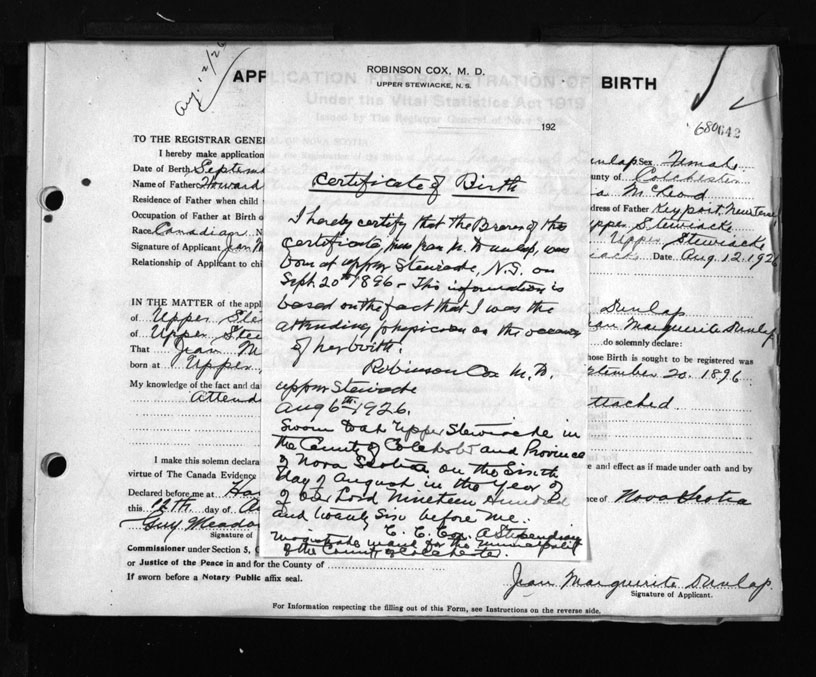 Aug. 12/26
APPLICATION FOR REGISTRATION OF BIRTH
Under the Vital Statistics Act 1919
Issued by The Registrar General of Nova Scotia
680642
ROBINSON COX, M. D.
UPPER STEWIACKE, N. S.
192
Certificate of Birth
I hereby certify that the Bearer of this
certificate, Miss Jean M. Dunlap, was
born at Upper Stewiacke, N.S. on
Sept. 20th 1896 - This information is
based on the fact that I was the
attending physician on the occasion
of her birth.
Robinson Cox M.D.
Upper Stewiacke
Aug 6th 1926.
Sworn to at Upper Stewiacke in
the County of Colchester and Province
of Nova Scotia on the Sixth
day of August in the Year of
of our Lord Nineteen Hundred
and twenty Six before me.
C. E. Cox, A Stipendiary
Magistrate in and for the Municipality
of the County of Colchester.
TO THE REGISTRAR GENERAL OF NOVA SCOTIA
I hereby make application
Dunlap Sex Female
Date of Birth Septem
County of Colchester
Name of Father Howard
McLeod
Residence of Father when child
Address of Father Keyport, New Jerse
Occupation of Father at Birth o
Upper Stewiacke
Race Canadian N
Upper Stewiacke
Signature of Applicant Jean M
Date Aug 12. 192
Relationship of Applicant to chi
IN THE MATTER of the appl
Dunlap
of Upper Ste
Jean Marguerite Dunlap
of Upper Stew
do solemnly declare:
That Jean M
whose Birth is sought to be registered was
born at Upper
September 20. 1896.
My knowledge of the fact and da
Attend
attached.
I make this solemn declara
e and effect as if made under oath and by
virtue of The Canada Evidence
Declared before me at Ha
nce of Nova Scotia
this 12th day of A
Guy Meado
Signature of
Commissioner under Section 5, C
or Justice of the Peace in and for the County of
If sworn before a Notary Public affix seal.
Jean Marguerite Dunlap.
Signature of Applicant.
For Information respecting the filling out of this Form, see Instructions on the reverse side.